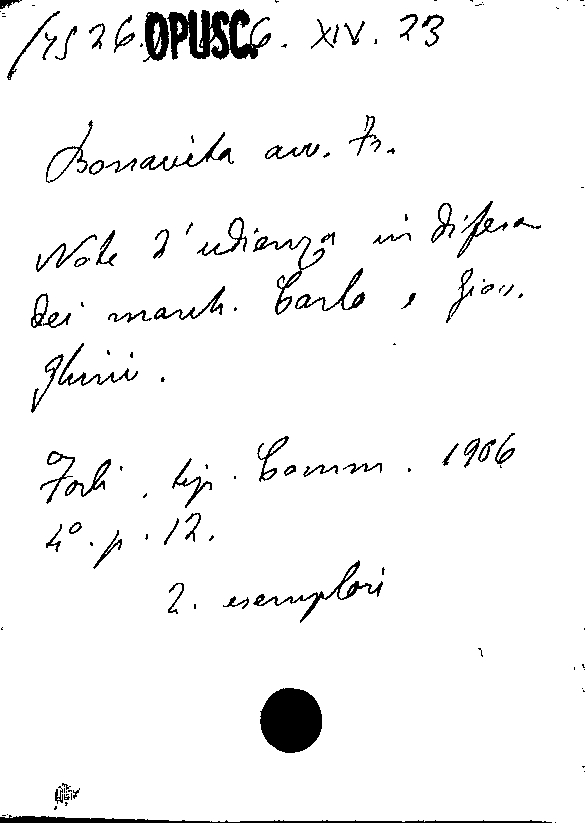 OPUSC. XIV. 23
Bonavita avv. Fr.
Note d'udienza in difesa
dei march. Carlo e Giov.
Ghini.
Forlì, tip. Comm. 1906
4º. p. 12.
2. esemplari